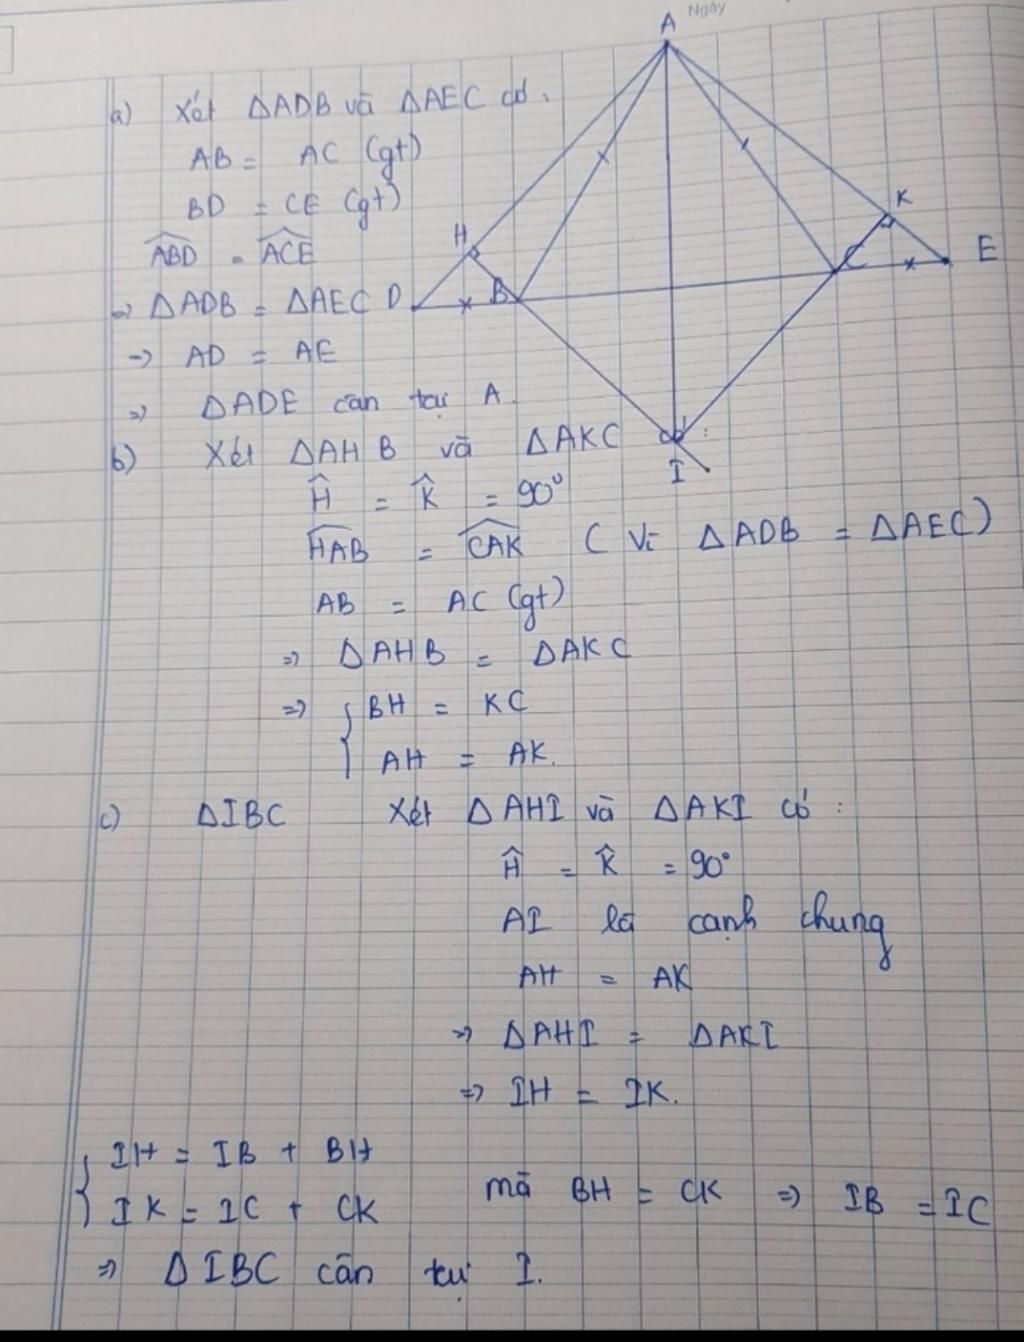 Ngày
A
a) Xét ΔADB và ΔAEC có.
AB = AC (gt)
BD = CE (gt)
K
H
ABD = ACE
E
C
=> ΔADB = ΔAEC
D
B
=> AD = AE
=> ΔADE cân tại A
b) Xét ΔAHB và ΔAKC :
I
Ĥ = K̂ = 90°
HAB = CAK (Vì ΔADB = ΔAEC)
AB = AC (gt)
=> ΔAHB = ΔAKC
=> { BH = KC
AH = AK.
c) ΔIBC Xét ΔAHI và ΔAKI có :
Ĥ = K̂ = 90°
AI là cạnh chung
AH = AK
=> ΔAHI = ΔAKI
=> IH = IK.
{ IH = IB + BH
IK = IC + CK mà BH = CK => IB = IC
=> ΔIBC cân tại I.